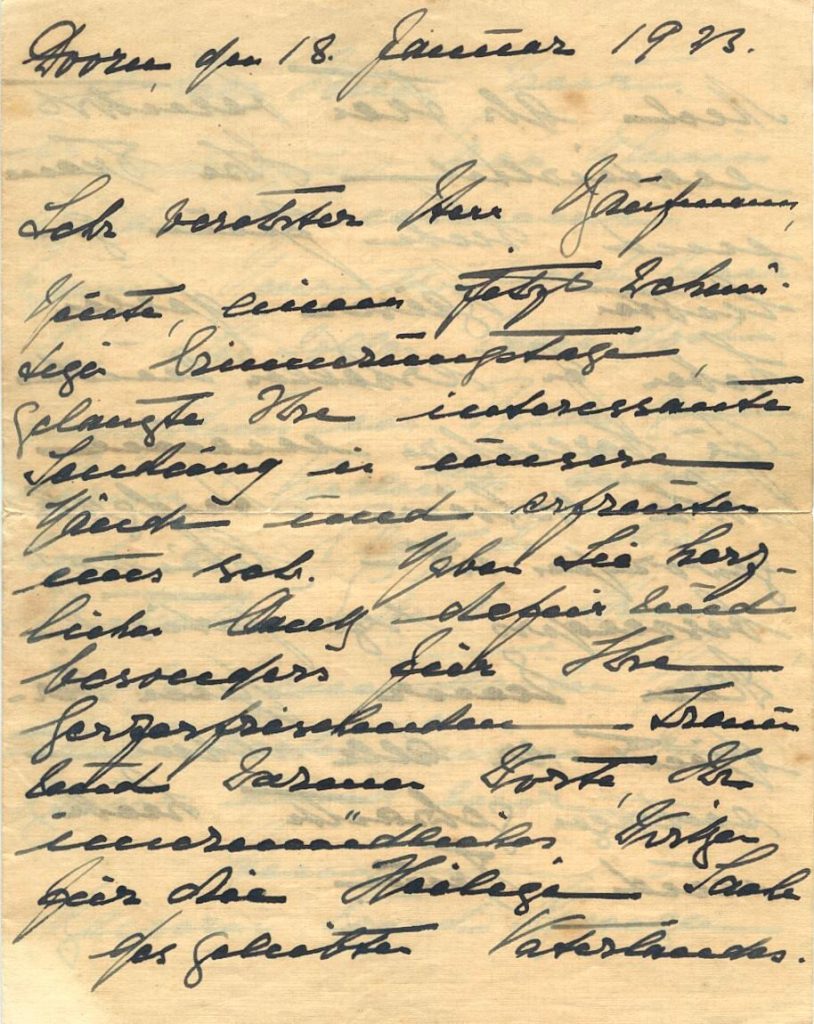 Doorn, den 18. Januar 1923.
Sehr verehrter Herr Kaufmann,
Heute, einem jetzt wehmü-
tigen Erinnerungstage,
gelangte Ihre interessante
Sendung in unsere
Hände und erfreuten
uns sehr. Haben Sie herz-
lichen Dank dafür und
besonders für Ihre
herzerfrischenden Treuen
und warmen Worte, Ihr
unermüdliches Wirken
für die Heilige Sache
des geliebten Vaterlandes.